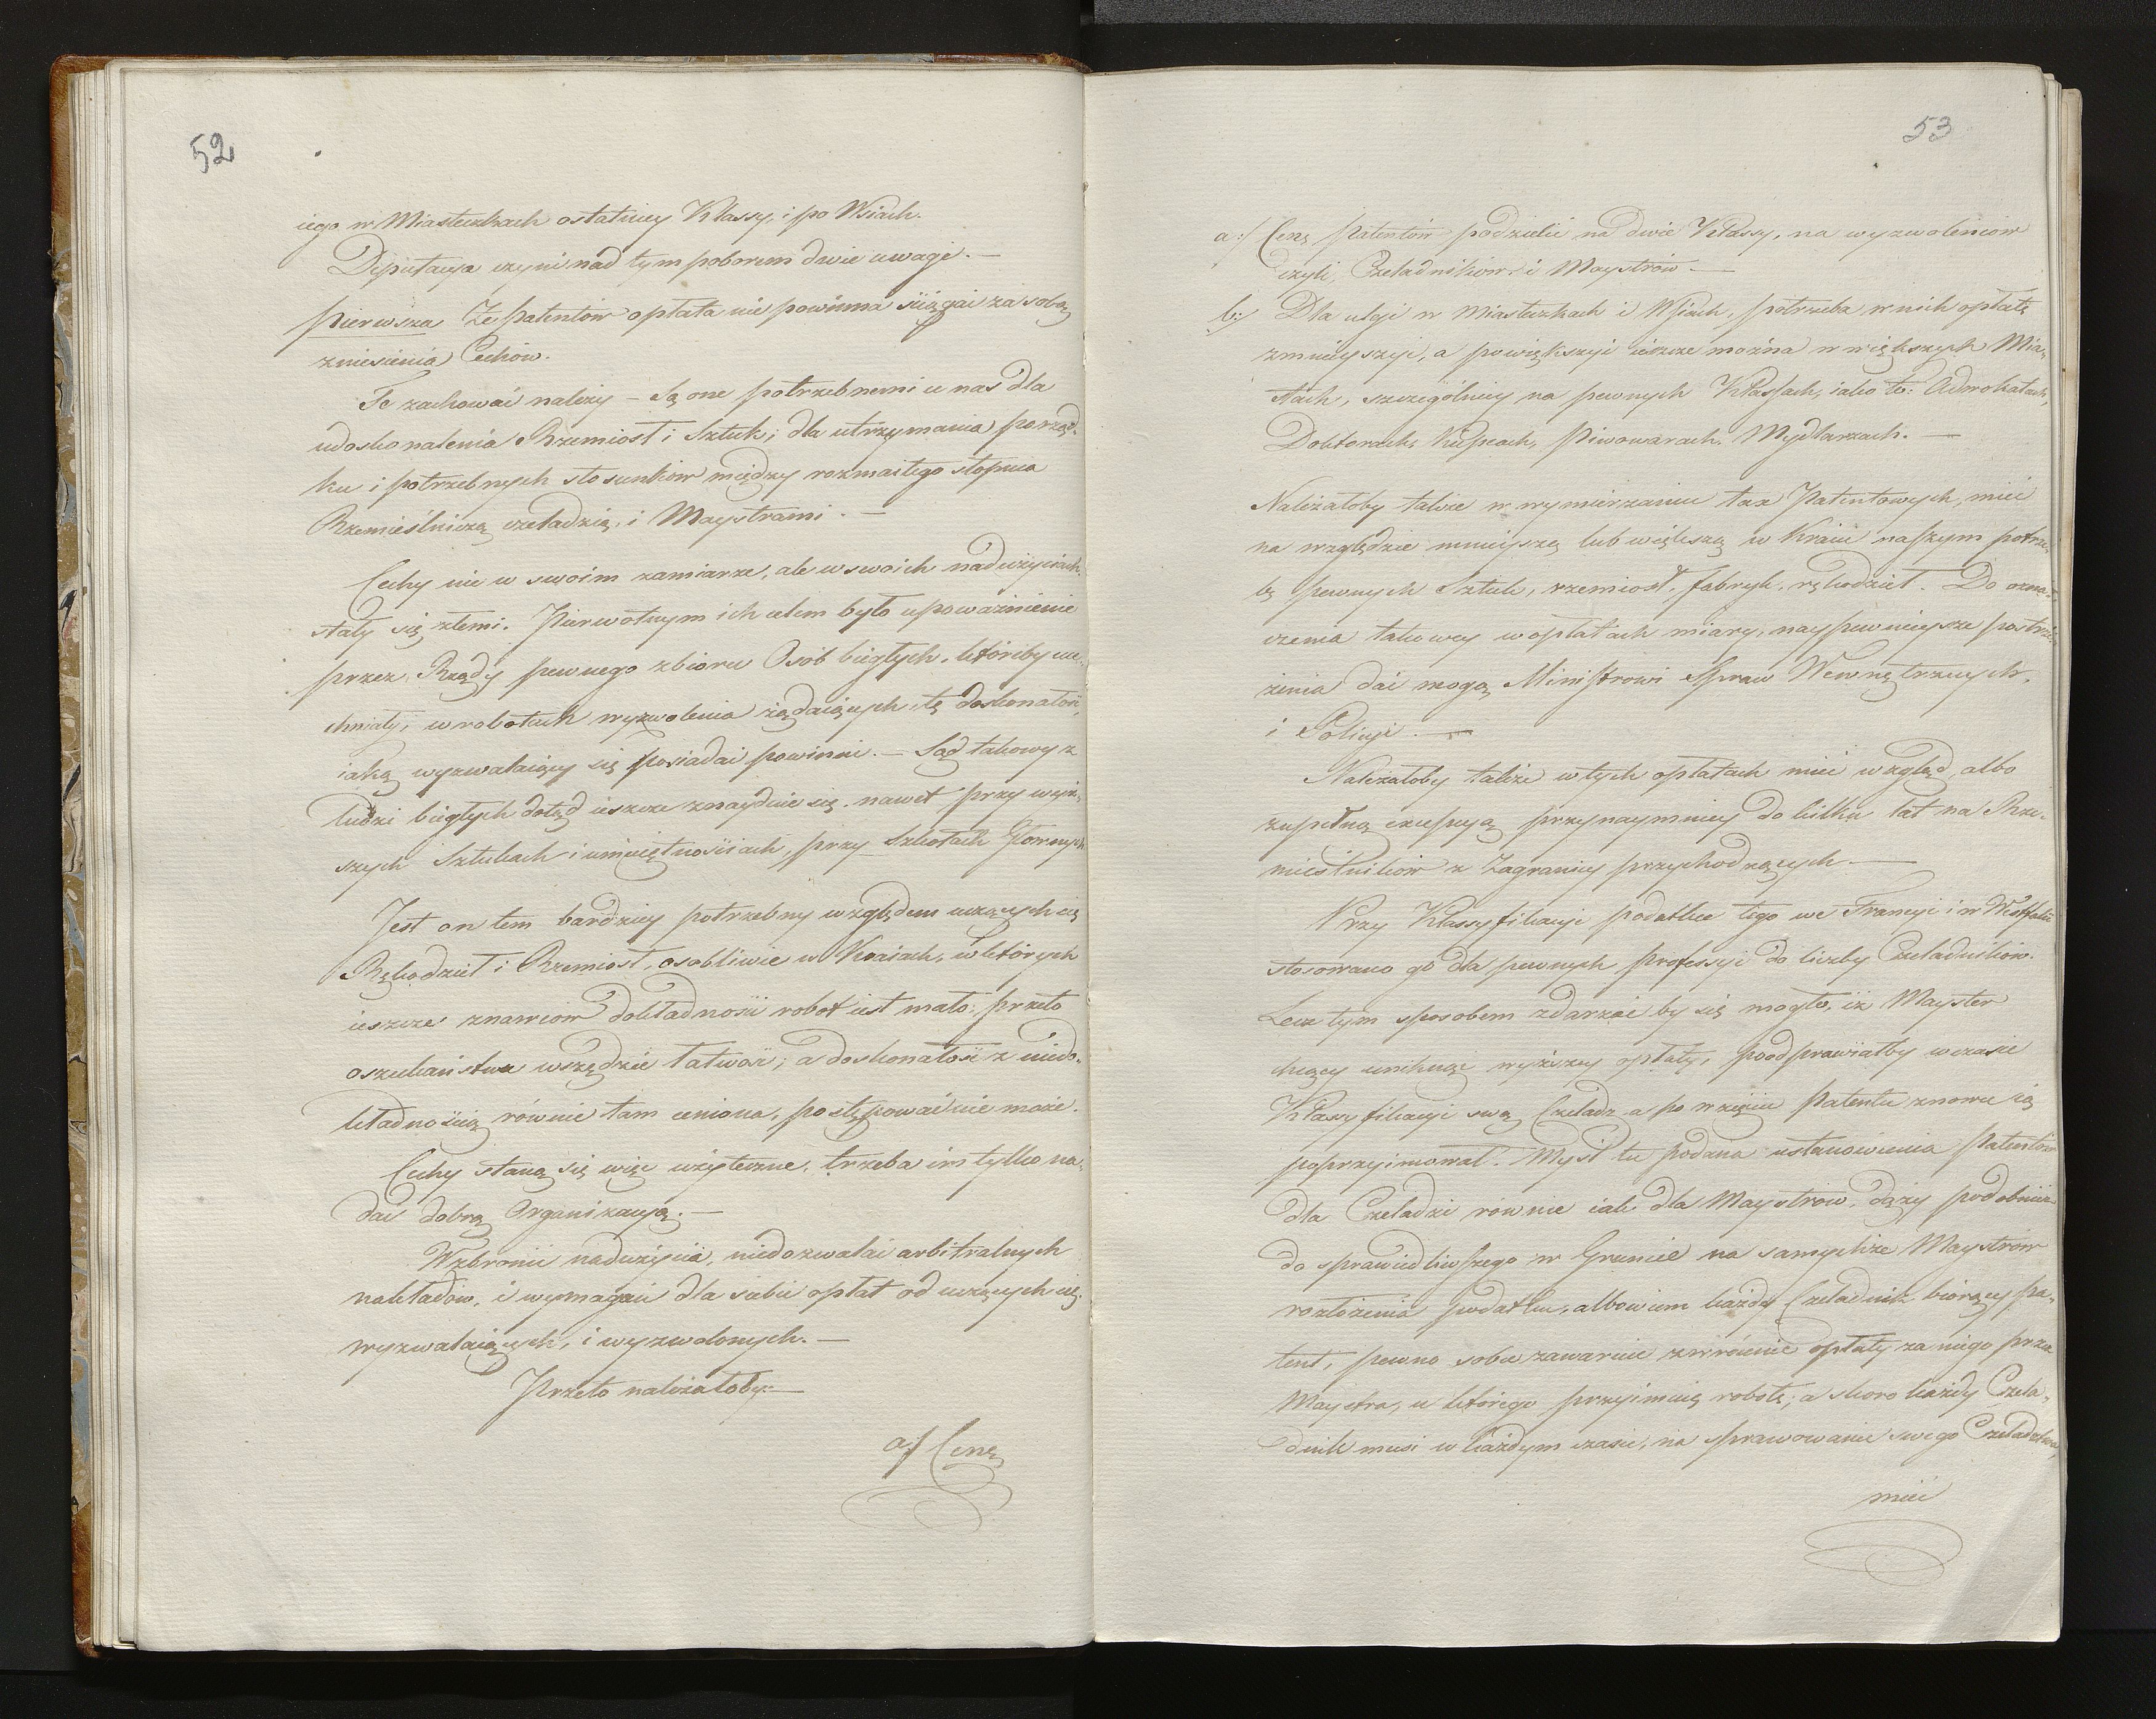 52
iego w Miasteczkach ostatniey Klassy, i po Wsiach.
Deputacya czyni nad tym poborem dwie uwagi. —
pierwsza Ze patentów opłata nie powinna ściągać za sobą
zniesienia Cechów.
Te zachować należy — Są one potrzebnemi u nas dla
udoskonalenia Rzemiosł i Sztuk; dla utrzymania porząd-
ku i potrzebnych stosunków między rozmaitego stopnia
Rzemieślniczą czeladzią, i Maystrami. —
Cechy nie w swoim zamiarze, ale w swoich nadużyciach
stały się złemi. Pierwotnym ich celem było upoważnienie
przez Rządy pewnego zbioru Osób biegłych, któriby uc-
chniały, w robotach wyzwolenia żądaiących, tę doskonałość,
iaką wyzwalaiący się posiadać powinni. — Sąd takowy z
ludzi biegłych dotąd ieszcze znayduie się, nawet przy wyż-
szych Sztukach i umieiętnościach, przy Szkołach Głownych
Jest on tem bardziey potrzebny względem uczących się
Rękodzieł i Rzemiosł, osobliwie w Kraiach, w których
ieszcze znawców dokładności robot iest mało; przeto
oszukaństwu wszędzie łatwość; a doskonałość z niedo-
kładnością równie tam ceniona, postępować nie może.
Cechy staną się więc użyteczne, trzeba im tylko na-
dać dobrą Organizacyą. —
Wzbronić nadużycia, niedozwalać arbitralnych
nakładów, i wymagań dla siebie opłat od uczących się,
wyzwalaiących, i wyzwolonych. —
Przeto należałoby: —
a/ Cenę
53
a:/ Cenę Patentów podzielić na dwie Klassy, na wyzwoleńców
czyli Czeladników i Maystrów. —
b:/ Dla ulgi w Miasteczkach i Wsiach, potrzeba w nich opłatę
zmnieyszyć, a powiększyć ieszcze można w większych Mia-
stach, szczególniey na pewnych Klassach, iako to: Adwokatach,
Doktorach, Kupcach, Piwowarach, Mydlarzach. —
Należałoby także w wymierzaniu tax Patentowych, mieć
na względzie mnieyszą lub większą w Kraiu naszym potrze-
bę pewnych Sztuk, rzemiosł, fabryk, rękodzieł. Do ozna-
czenia takowey w opłatach miary, naypewnieysze postrze-
żenia dać mogą Ministrowi Spraw Wewnętrznych,
i Policyi. —
Należałoby także w tych opłatach mieć wzgląd, albo
zupełną excepcyą przynaymniey do kilku lat na Rze-
mieślników z Zagranicy przychodzących —
Przy Klassyfikacyi podatku tego we Francyi i w Westfalii
stosowano go dla pewnych professyi do liczby Czeladników.
Lecz tym sposobem zdarzać by się mogło, iż Mayster
chcący uniknąć wyższey opłaty, poodprawiałby w czasie
Klassyfikacyi swą Czeladz a po wzięciu Patentu znowu ią
poprzyimował. Myśl tu podana ustanowienia Patentów
dla Czeladzi równie iak dla Maystrów, dąży podobnie
do sprawiedliwszego w Gruncie na samychże Maystrów
rozłożenia podatku, albowiem każdy Czeladnik biorący pa-
tent, pewno sobie zawaruie zwrócenie opłaty za niego przez
Maystra, u którego przyimuię robotę; a skoro każdy Czela-
dnik musi w każdym czasie, na sprawowanie swego Czeladnictwa,
mieć